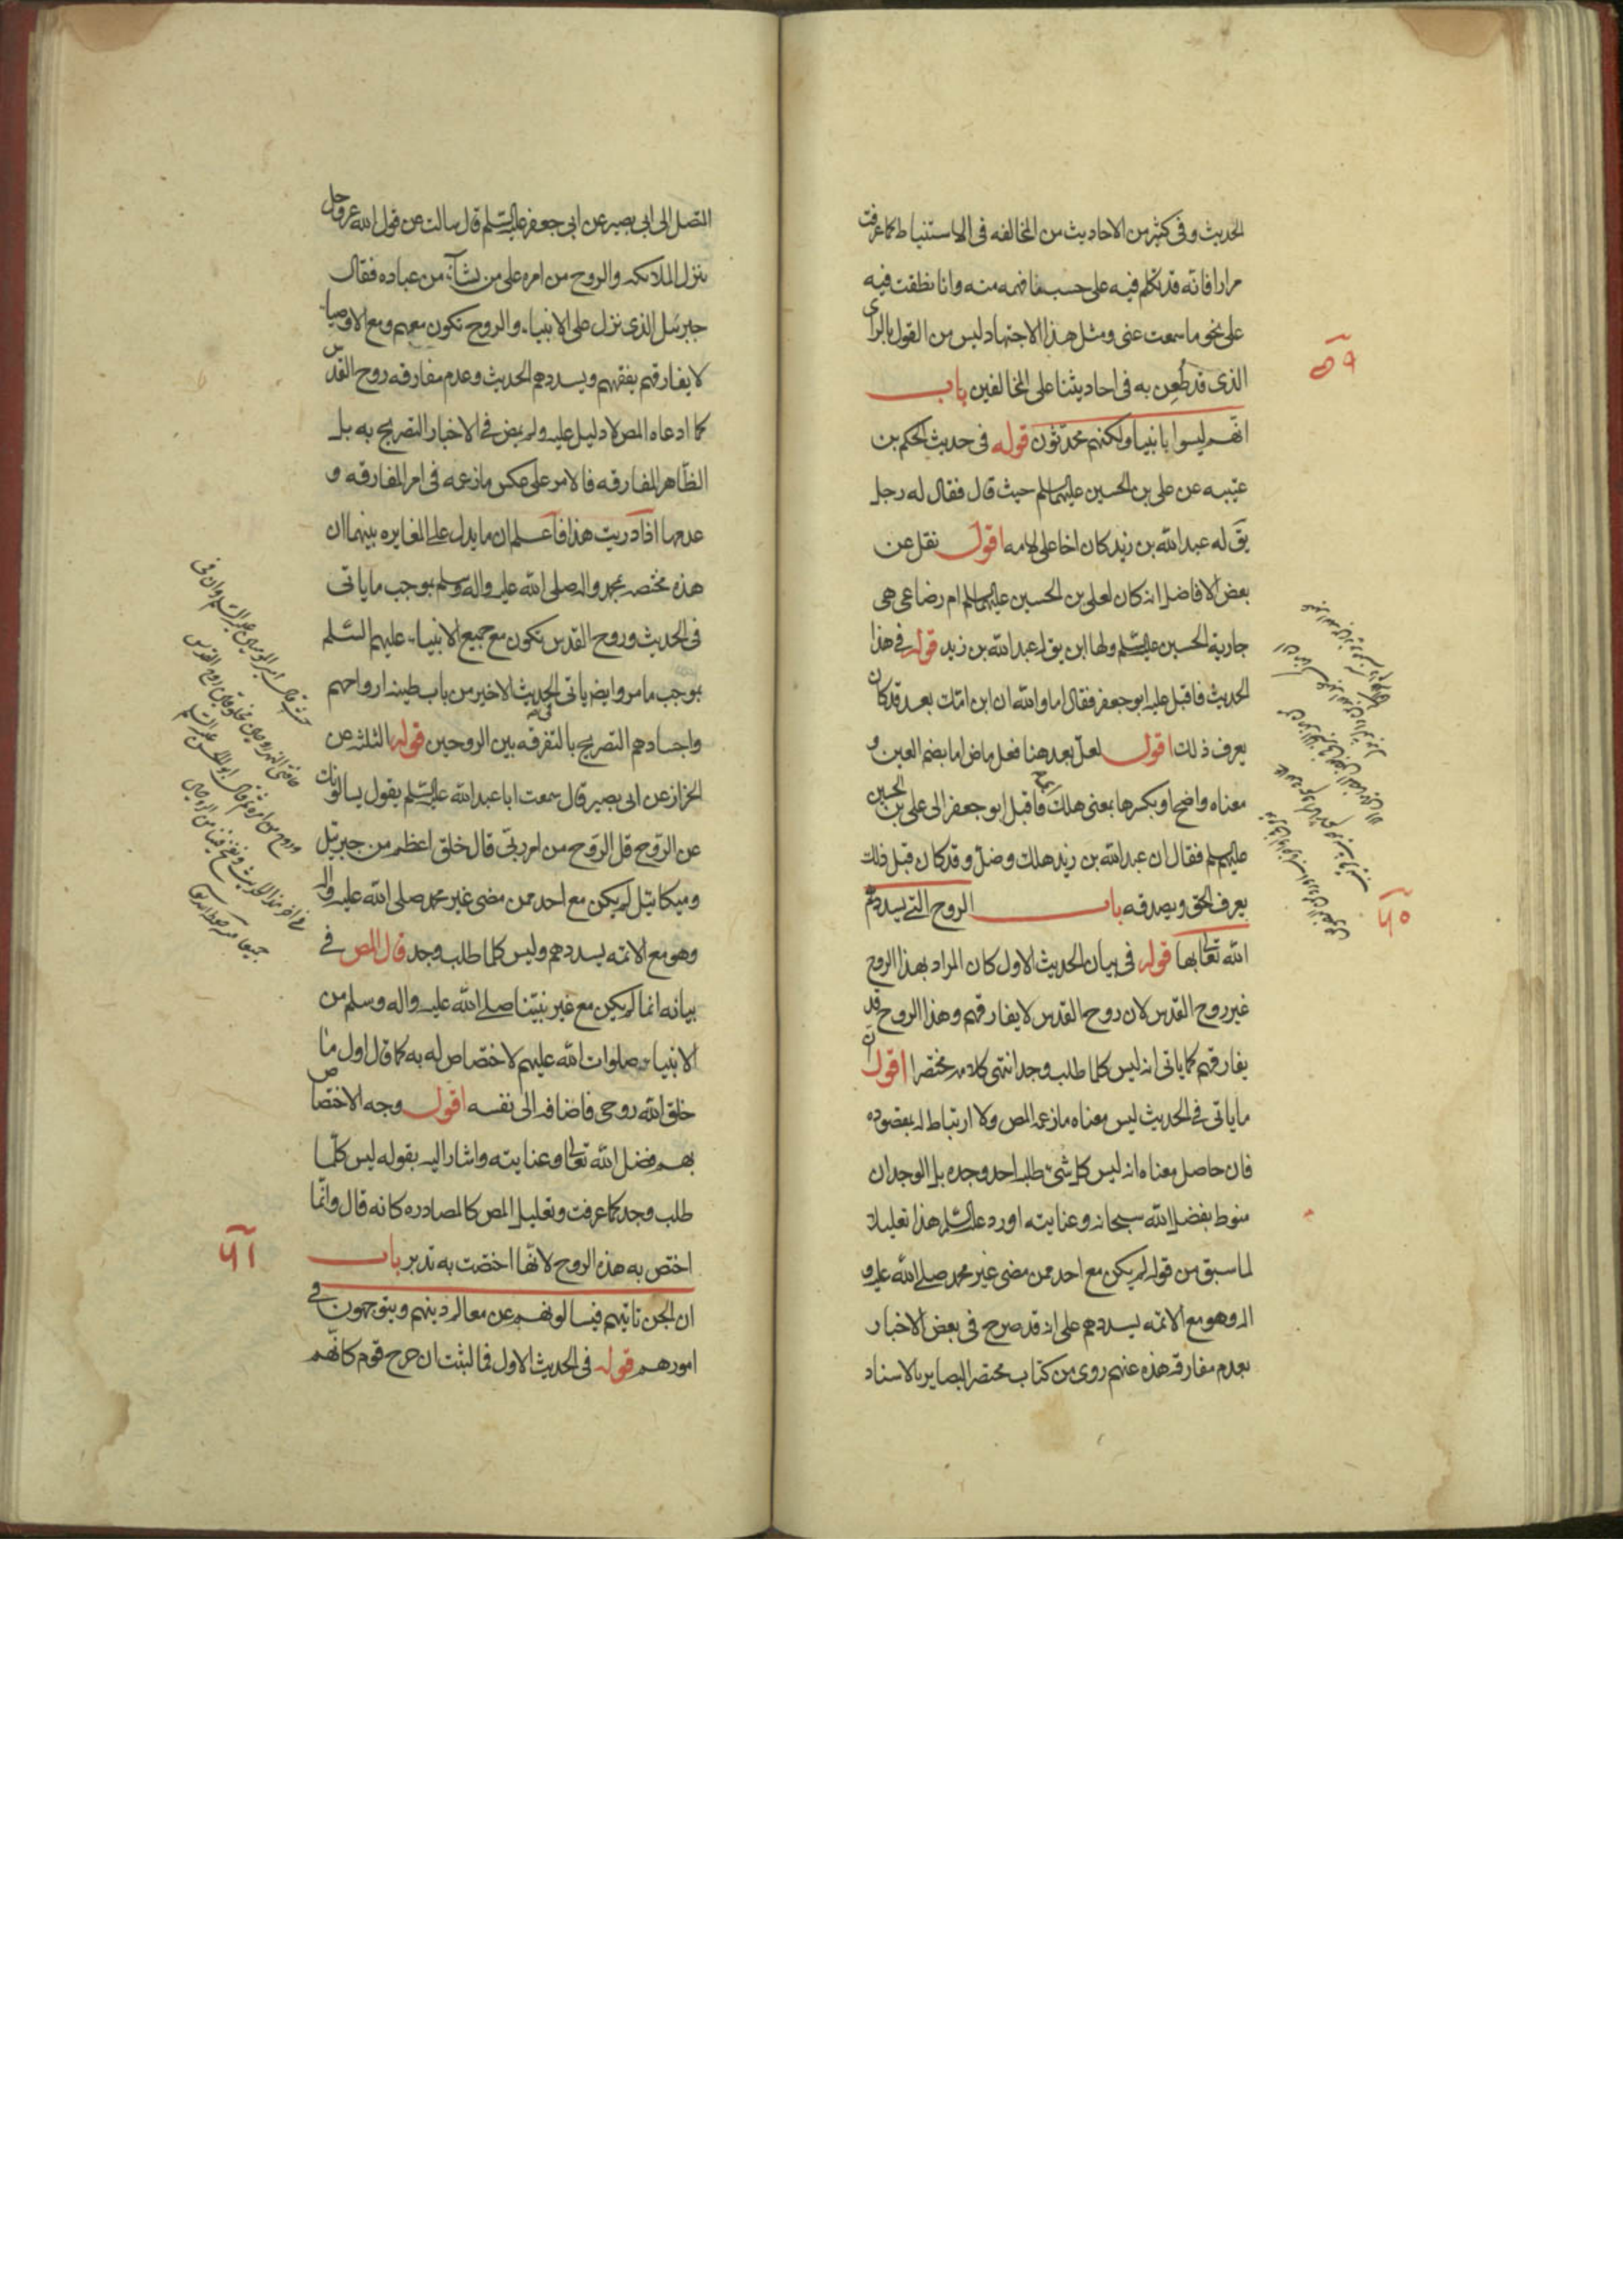 الحديث وفى كثير من الاحاديث من المخالفه فى الاستنباط كما عرفت
مرارا فانه قد تكلم فيه على حسب ما فهمه منه وانا نطقت فيه
على نحو ما سمعت عنى ومثل هذا الاجتهاد ليس من القول بالراى
الذى قد طُعِن به فى احاديثنا على المخالفين باب
انهم ليسوا بانبيا ولكنهم محدثون قوله فى حديث الحكم بن
عتيبه عن على بن الحسين عليهما السلم حيث قال فقال له رجل
يق له عبد الله بن زيد كان اخا على لامه اقول نقل عن
بعض الافاضل انه كان لعلى بن الحسين عليهما السلم ام رضاعى هى
جارية الحسين عليه السلم ولها ابن يق له عبد الله بن زيد قوله فى هذا
الحديث فاقبل عليه ابو جعفر فقال اما والله ان ابن امك بعد قد كان
يعرف ذلك اقول لعل بعد هنا فعل ماض اما بضم العين و
معناه واضح او بكسرها بمعنى هلك فاقبل ابو جعفر الى على بن الحسين
عليهم السلم فقال ان عبد الله بن زيد هلك وضل وقد كان قبل ذلك
يعرف الحق ويصدقه باب الروح التى يسددهم
الله تعالى بها قوله فى بيان الحديث الاول كان المراد بهذا الروح
غير روح القدس لان روح القدس لا يفارقهم وهذا الروح قد
يفارقهم كما ياتى انه ليس كلما طلب وجد انتهى كلامه مختصرا اقول ان
ما ياتى فى الحديث ليس معناه ما زعمه المص ولا ارتباط له بمقصوده
فان حاصل معناه انه ليس كل شئ طلبه احد وجده بل الوجدان
منوط بفضل الله سبحانه وعنايته اورد عليه السلم هذا تعليلا
لما سبق من قوله لم يكن مع احد ممن مضى غير محمد صلى الله عليه و
اله وهو مع الائمه يسددهم على انه قد صرح فى بعض الاخبار
بعدم مفارقة هذه عنهم روى من كتاب مختصر البصاير بالاسناد
٥٩
٦٠
المتصل الى ابى بصير عن ابى جعفر عليه السلم قال سالت عن قول الله عز وجل
ينزل الملائكه والروح من امره على من يشآء من عباده فقال
جبرئيل الذى نزل على الانبياء والروح تكون معهم ومع الاوصياء
لا يفارقهم يفقههم ويسددهم الحديث وعدم مفارقه روح القدس
كما ادعاه المص لا دليل عليه ولم يمض فى الاخبار التصريح به بل
الظاهر المفارقه فالامر على عكس ما زعمه فى امر المفارقه و
عدمها اذا دريت هذا فاعلم ان ما يدل على المغايره بينهما ان
هذه مختصه بمحمد واله صلى الله عليه واله وسلم بموجب ما ياتى
فى الحديث وروح القدس تكون مع جميع الانبياء عليهم السلم
بموجب ما مر وايضا ياتى الحديث الاخير من باب طينه ارواحهم
واجسادهم التصريح بالتفرقه بين الروحين قوله الثلثه عن
الخزاز عن ابى بصير قال سمعت ابا عبد الله عليه السلم يقول يسالونك
عن الروح قل الروح من امر ربى قال خلق اعظم من جبرئيل
وميكائيل لم يكن مع احد ممن مضى غير محمد صلى الله عليه واله
وهو مع الائمه يسددهم وليس كلما طلب وجد قال المص فى
بيانه انما لم يكن مع غير نبينا صلى الله عليه واله وسلم من
الانبياء صلوات الله عليهم لاختصاص له به كما قال اول ما
خلق الله روحى فاضافه الى نفسه اقول وجه الاختصاص
بهم فضل الله تعالى وعنايته واشار اليه بقوله ليس كلما
طلب وجد كما عرفت وتعليل المص كالمصادره كانه قال وانما
اختص به هذه الروح لانها اختصت به تدبر باب
ان الجن تاتيهم فيسالونهم عن معالم دينهم ويتوجهون فى
امورهم قوله فى الحديث الاول فما لبثت ان خرج قوم كانهم
٦١